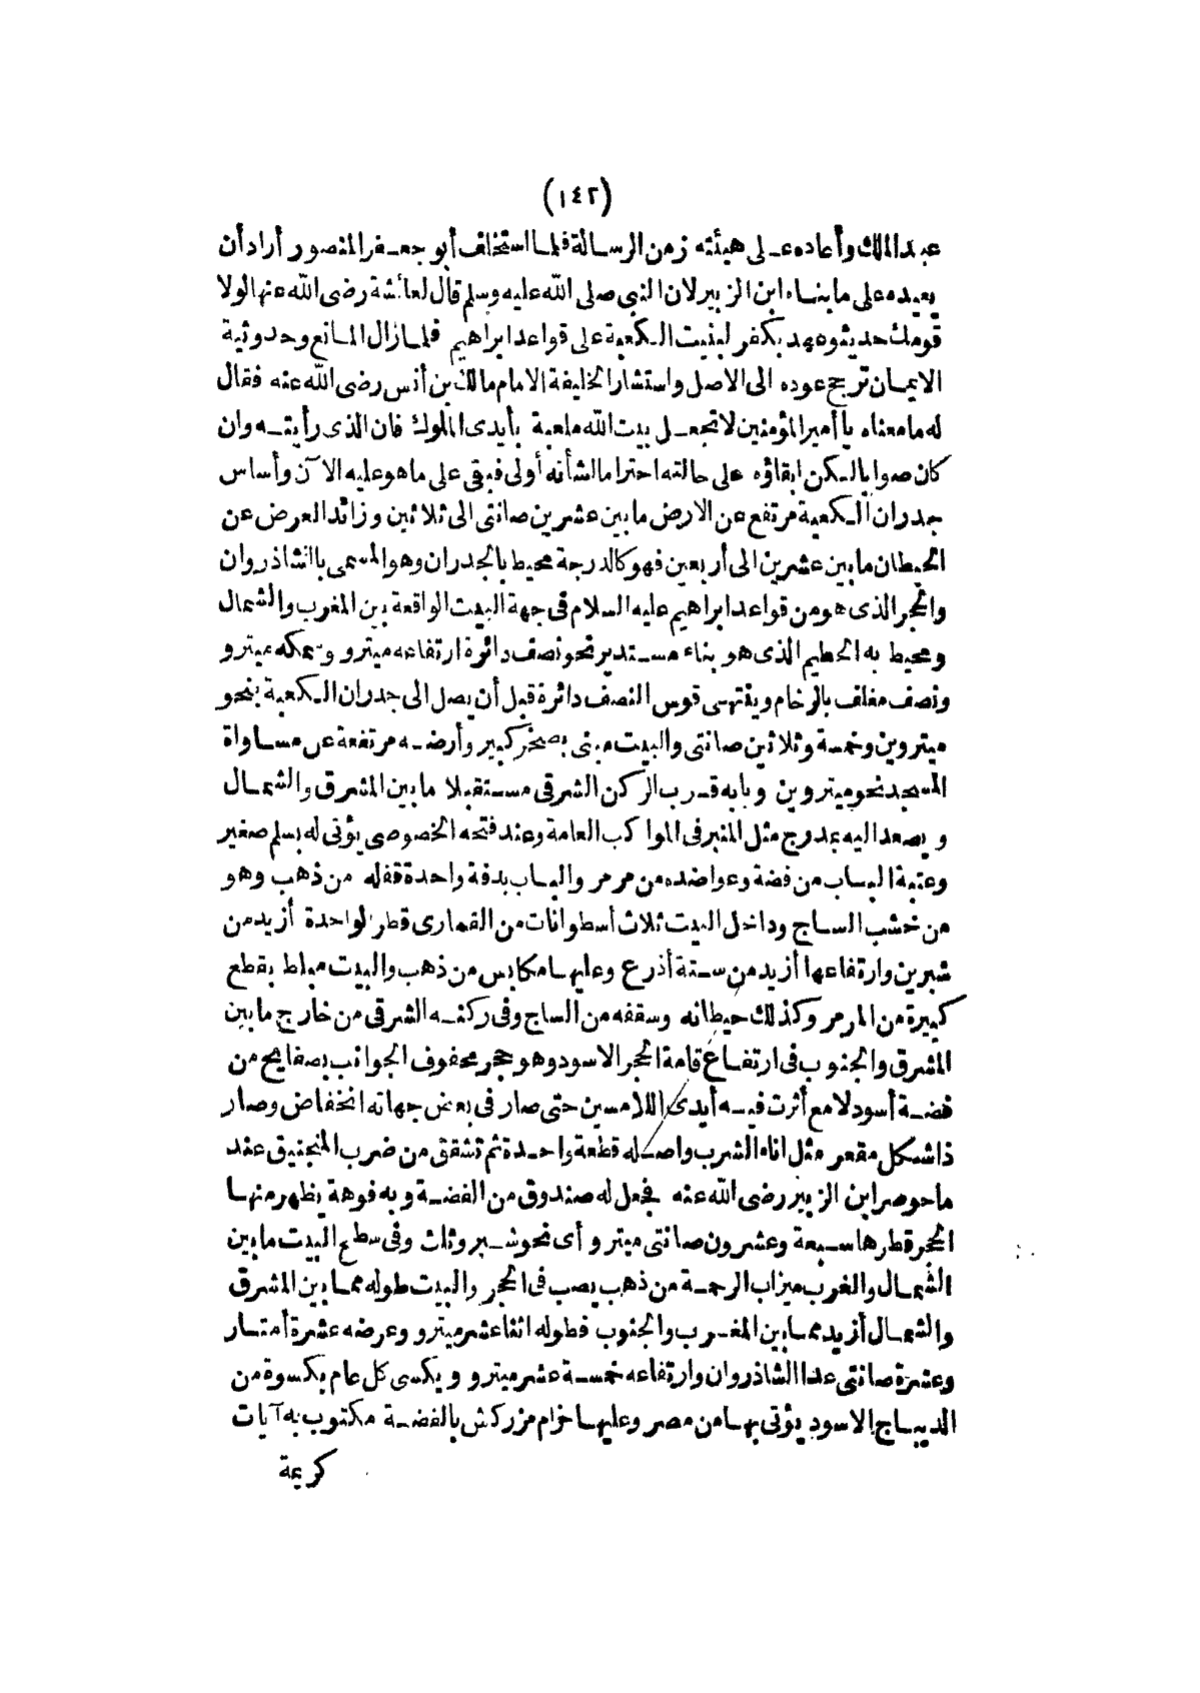 (١٤٢)
عبد الملك وأعاده على هيئته زمن الرسالة فلما استخلف أبو جعفر المنصور أراد أن
يعيده على ما بناه ابن الزبير لان النبي صلى الله عليه وسلم قال لعائشة رضى الله عنها لولا
قومك حديثو عهد بكفر لبنيت الكعبة على قواعد ابراهيم فلما زال المانع وحدوثية
الايمان ترجح عوده الى الاصل واستشار الخليفة الامام مالك بن أنس رضى الله عنه فقال
له ما معناه يا أمير المؤمنين لا تجعل بيت الله ملعبة بأيدى الملوك فان الذى رأيته وان
كان صوابا لكن ابقاؤه على حالته احتراما لشأنه أولى فبقى على ما هو عليه الآن وأساس
جدران الكعبة مرتفع عن الارض ما بين عشرين صانتى الى ثلاثين وزائد العرض عن
الحيطان ما بين عشرين الى أربعين فهو كالدرجة محيط بالجدران وهو المسمى بالشاذروان
والحجر الذى هو من قواعد ابراهيم عليه السلام فى جهة البيت الواقعة بين المغرب والشمال
ومحيط به الحطيم الذى هو بناء مستدير نحو نصف دائرة ارتفاعه ميترو وسمكه ميترو
ونصف مغلف بالرخام وينتهى قوس النصف دائرة قبل أن يصل الى جدران الكعبة بنحو
ميتروين وخمسة وثلاثين صانتى والبيت مبنى بصخر كبير وأرضه مرتفعة عن مساواة
المسجد نحو ميتروين وبابه قرب الركن الشرقى مستقبلا ما بين المشرق والشمال
ويصعد اليه بمدرج مثل المنبر فى المواكب العامة وعند فتحه الخصوصى يؤتى له بسلم صغير
وعتبة الباب من فضة وعواضده من مرمر والباب بدفة واحدة قفله من ذهب وهو
من خشب الساج وداخل البيت ثلاث أسطوانات من القمارى قطر الواحدة أزيد من
شبرين وارتفاعها أزيد من ستة أذرع وعليها مكابس من ذهب والبيت مبلط بقطع
كبيرة من المرمر وكذلك حيطانه وسقفه من الساج وفى ركنه الشرقى من خارج ما بين
المشرق والجنوب فى ارتفاع قامة الحجر الاسود وهو حجر محفوف الجوانب بصفايح من
فضة أسود لامع أثرت فيه أيدى اللامسين حتى صار فى بعض جهاته انخفاض وصار
ذا شكل مقعر مثل اناء الشرب واصله قطعة واحدة ثم تشقق من ضرب المنجنيق عند
ما حوصر ابن الزبير رضى الله عنه فجعل له صندوق من الفضة وبه فوهة يظهر منها
الحجر قطرها سبعة وعشرون صانتى ميترو أى نحو شبر وثلث وفى سطح البيت ما بين
الشمال والغرب ميزاب الرحمة من ذهب يصب فى الحجر والبيت طوله مما بين المشرق
والشمال أزيد مما بين المغرب والجنوب فطوله اثنا عشر ميترو وعرضه عشرة أمتار
وعشرة صانتى عدا الشاذروان وارتفاعه خمسة عشر ميترو ويكسى كل عام بكسوة من
الديباج الاسود يؤتى بها من مصر وعليها حزام مزركش بالفضة مكتوب به آيات
كريمة